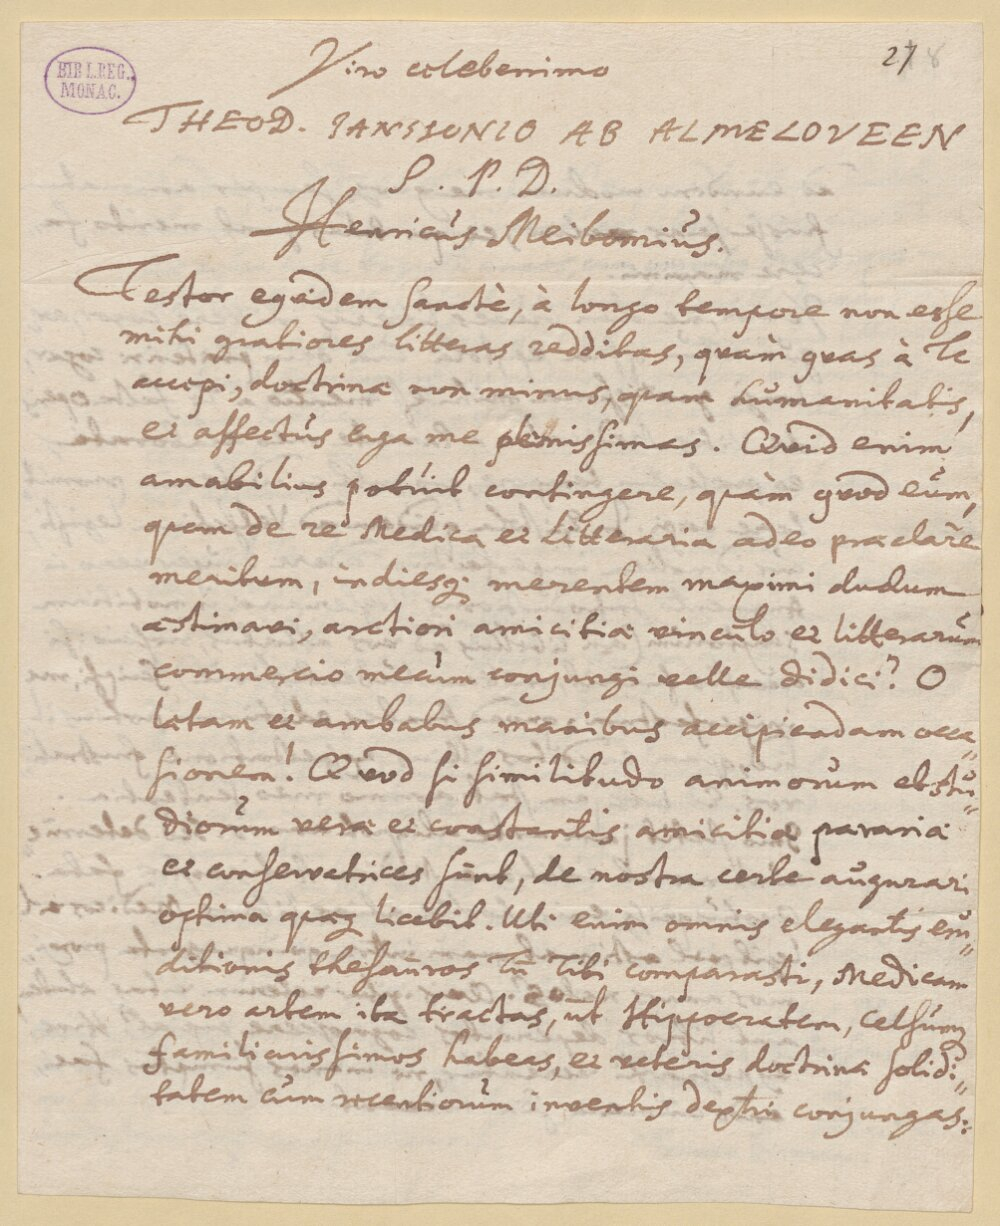 BIBL.REG.
MONAC.
27
Viro celeberrimo
THEOD. IANSSONIO AB ALMELOVEEN
S. P. D.
Henricus Meibomius.
Testor eqvidem sanctè, à longo tempore non esse
mihi gratiores litteras redditas, qvàm qvas à Te
accepi, doctrinæ non minus, qvam humanitatis,
et affectûs erga me plenissimas. Qvid enim
amabilius potuit contingere, qvàm qvod eum,
qvem de re Medica et Litteraria adeo præclarè
meritum, indiesq; merentem maximi dudum
æstimavi, arctiori amicitiæ vinculo et litterarum
commercio mecum conjungi velle didici? O
lætam et ambabus manibus accipiendam occa„
sionem! Qvod si similitudo animorum et stu„
diorum veræ et constantis amicitiæ parariæ
et conservatrices sunt, de nostra certe augurari
optima qvæq; licebit. Uti enim omnis elegantis eru„
ditionis thesauros Tu Tibi comparasti, Medicam
vero artem ita tractas, ut Hippocratem, Celsumq;
familiarissimos habeas, et veteris doctrinæ solidi„
tatem cum recentiorum inventis dextrè conjungas: